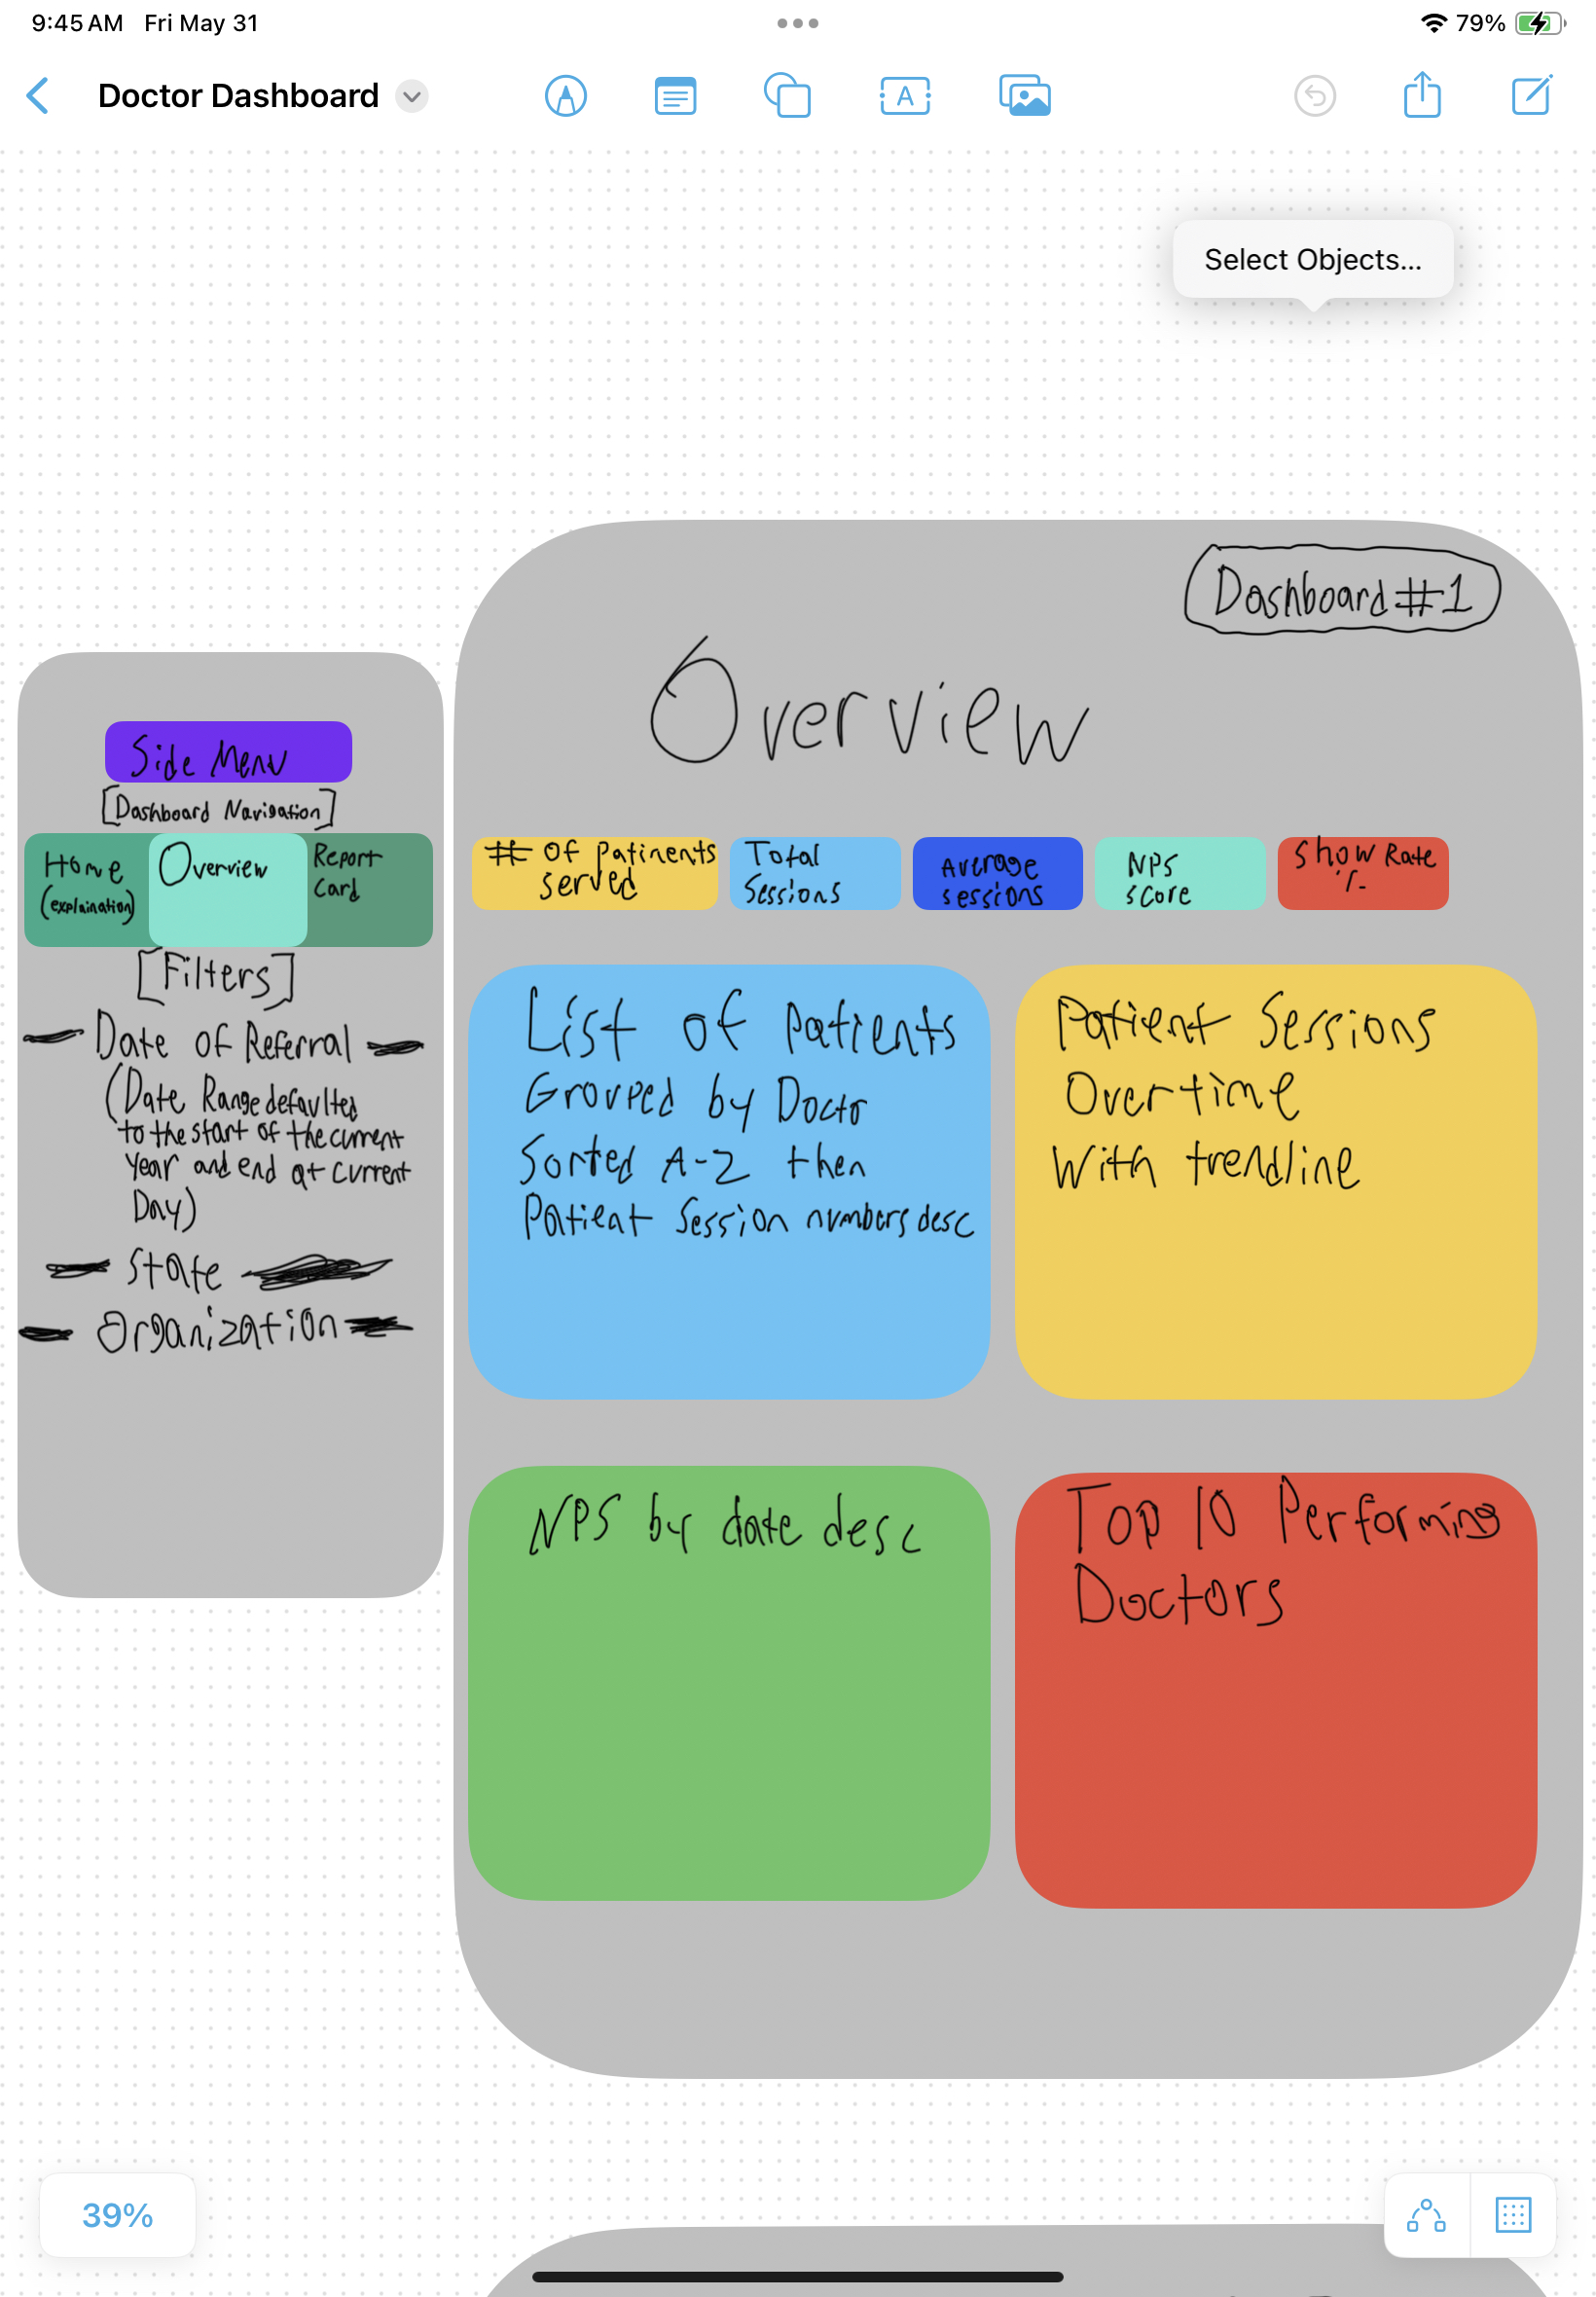 9:45 AM Fri May 31
79%
Doctor Dashboard
A
Select Objects...
Dashboard #1
Overview
Side Menu
[Dashboard Navigation]
Home
(explaination)
Overview
Report
Card
[Filters]
Date of Referral
(Date Range defaulted
to the start of the current
Year and end at current
Day)
State
Organization
# of Patinents
served
Total
Sessions
Average
sessions
NPS
score
Show Rate
List of Patients
Grouped by Doctor
Sorted A-Z then
Patient Session numbers desc
Patient Sessions
Overtime
With trendline
NPS by date desc
Top 10 Performing
Doctors
39%